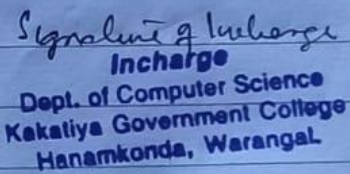 Signature of Incharge
Incharge
Dept. of Computer Science
Kakatiya Government College
Hanamkonda, Warangal